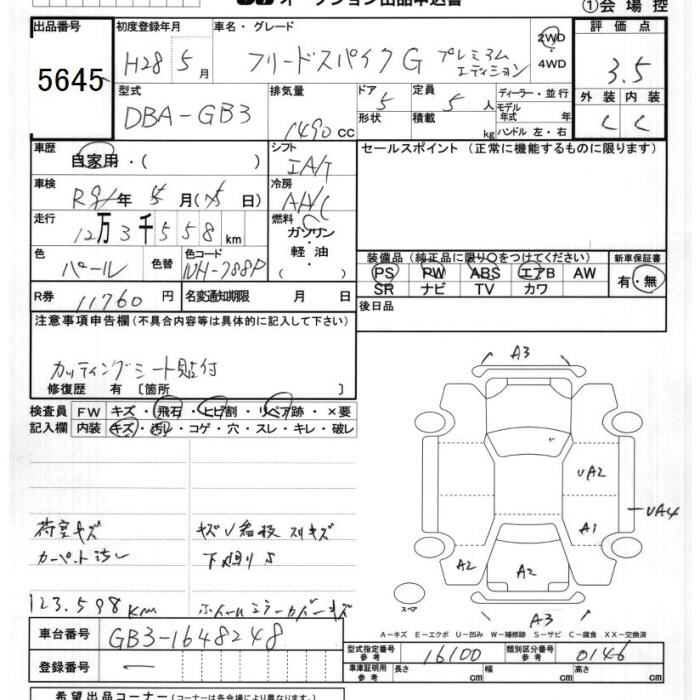 オークション出品申込書
①会場控
出品番号 5645
初度登録年月 H28 5月
車名・グレード フリードスパイク G プレミアムエディション
2WD・4WD
評価点 3.5
外装 C 内装 C
型式 DBA-GB3
排気量 1490 cc
ドア 5 形状
定員 5人 積載 kg
ディーラー・並行
モデル年式 年
ハンドル 左・右
車歴 自家用・( )
シフト IA/T
セールスポイント (正常に機能するものに限ります)
車検 年 月( 日)
冷房 AA/C
走行 12万3千558km
燃料 ガソリン・軽油・( )
色 パール 色替 色コード NH-788P
装備品 (純正品に限り○をつけてください)
新車保証書 有・無
PS PW ABS エアB AW
SR ナビ TV カワ
R券 11760円 名変通知期限 月 日
後日品
注意事項申告欄 (不具合内容等は具体的に記入して下さい)
カッティングシート貼付
修復歴 有〔箇所 〕
検査員記入欄
FW キズ・飛石・ヒビ割・リペア跡・×要
内装 キズ・汚れ・コゲ・穴・スレ・キレ・破レ
荷室キズ
カーペット汚レ
123.598KM
下廻りS
ホイールミラーカバーキズ
A3
UA2
UA4
A1
A2
A2
A3
スペア
A-キズ E-エクボ U-凹み W-補修跡 S-サビ C-腐食 XX-交換済
車台番号 GB3-1648248
登録番号 —
型式指定番号 参考 16100
類別区分番号 参考 0146
車庫証明用 参考 長さ cm 幅 cm 高さ cm
希望出品コーナー (コーナーは各会場により異なります)